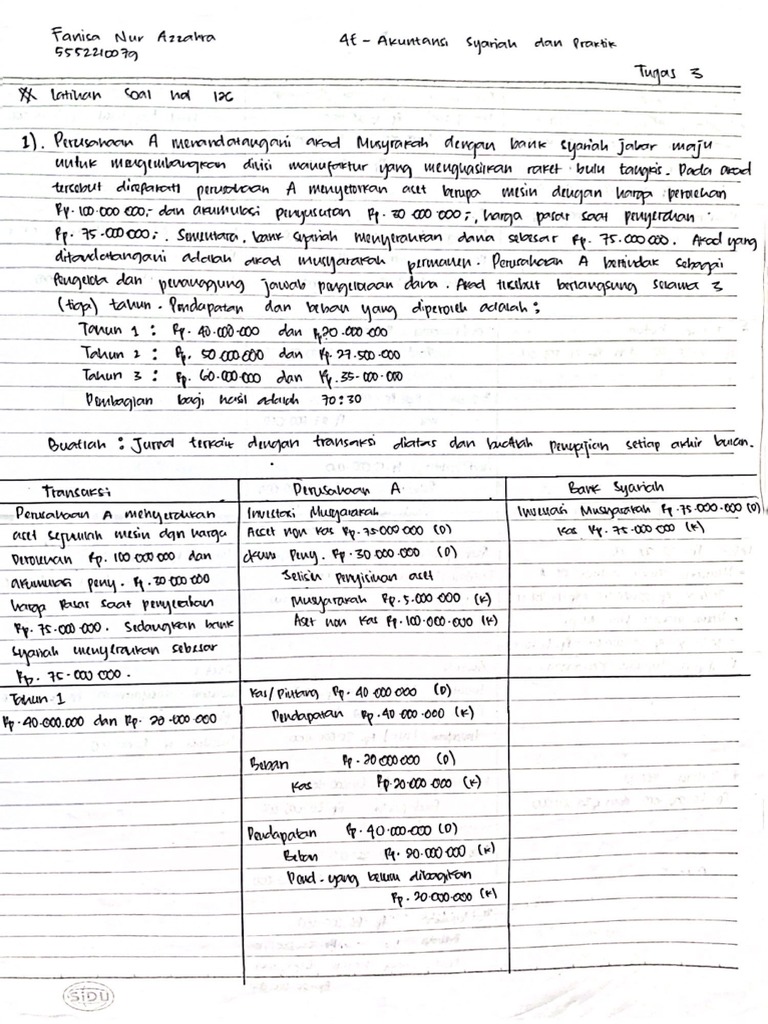 Fanisa Nur Azzahra
5552210079
4E - Akuntansi Syariah dan Praktik
Tugas 3
** Latihan Soal hal 126
1). Perusahaan A menandatangani akad Musyrakah dengan bank syariah jabar maju
untuk mengembangkan divisi manufaktur yang menghasilkan raket bulu tangkis. Pada akad
tersebut disepakati perusahaan A menyetorkan aset berupa mesin dengan harga perolehan
Rp. 100.000.000,- dan akumulasi penyusutan Rp. 30.000.000,-, harga pasar saat penyerahan :
Rp. 75.000.000,-. Sementara, bank syariah menyerahkan dana sebesar Rp. 75.000.000. Akad yang
ditandatangani adalah akad musyarakah permanen. Perusahaan A bertindak sebagai
pengelola dan penanggung jawab pengelolaan dana. Akad tersebut berlangsung selama 3
(tiga) tahun. Pendapatan dan beban yang diperoleh adalah :
Tahun 1 : Rp. 40.000.000 dan Rp.20.000.000
Tahun 2 : Rp. 50.000.000 dan Rp. 27.500.000
Tahun 3 : Rp. 60.000.000 dan Rp. 35.000.000
Pembagian bagi hasil adalah 70:30
Buatlah : Jurnal terkait dengan transaksi diatas dan buatlah penyajian setiap akhir bulan.
Transaksi
Perusahaan A menyerahkan
aset sejumlah mesin dgn harga
perolehan Rp. 100.000.000 dan
akumulasi peny. Rp. 30.000.000
harga pasar saat penyerahan
Rp. 75.000.000. Sedangkan bank
syariah menyerahkan sebesar
Rp. 75.000.000.
Tahun 1
Rp. 40.000.000 dan Rp. 20.000.000
Perusahaan A
Investasi Musyarakah
Asset non kas Rp. 75.000.000 (D)
akum. Peny. Rp. 30.000.000 (D)
Selisih Penyisihan aset
Musyarakah Rp. 5.000.000 (K)
Aset non Kas Rp. 100.000.000 (K)
Kas/Piutang Rp. 40.000.000 (D)
Pendapatan Rp. 40.000.000 (K)
Beban Rp. 20.000.000 (D)
Kas Rp. 20.000.000 (K)
Pendapatan Rp. 40.000.000 (D)
Beban Rp. 20.000.000 (K)
Pend. yang belum dibagikan
Rp. 20.000.000 (K)
Bank Syariah
Investasi Musyarakah Rp. 75.000.000 (D)
Kas Rp. 75.000.000 (K)
SIDU